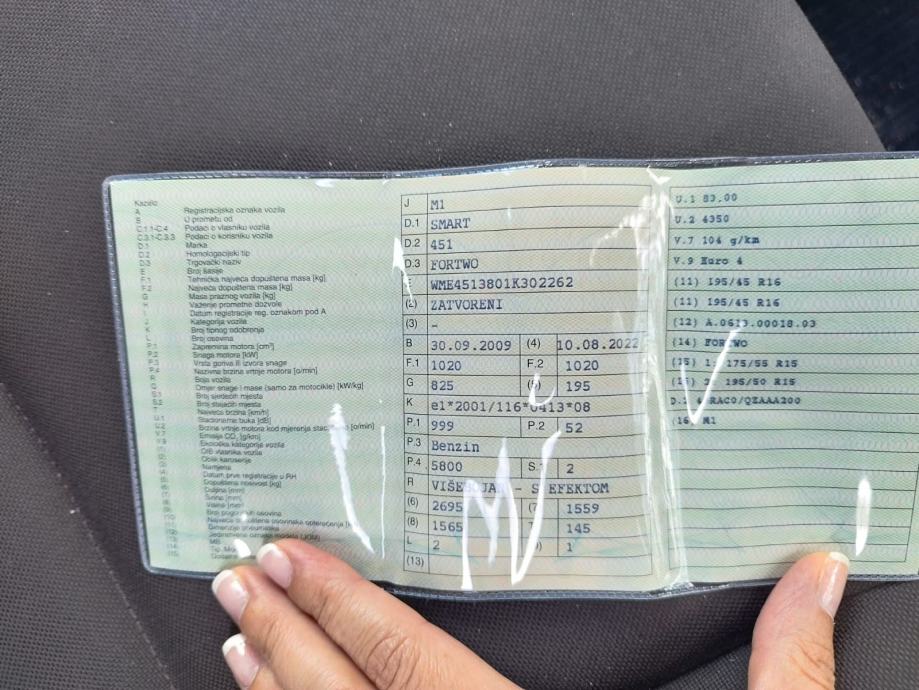 Kazalo:
A Registracijska oznaka vozila
B U prometu od
C.1.1-C.4 Podaci o vlasniku vozila
C.3.1-C.3.3 Podaci o korisniku vozila
D.1 Marka
D.2 Homologacijski tip
D.3 Trgovački naziv
E Broj šasije
F.1 Tehnička najveća dopuštena masa [kg]
F.2 Najveća dopuštena masa [kg]
G Masa praznog vozila [kg]
H Važenje prometne dozvole
I Datum registracije reg. oznakom pod A
J Kategorija vozila
K Broj tipnog odobrenja
L Broj osovina
P.1 Zapremina motora [cm³]
P.2 Snaga motora [kW]
P.3 Vrsta goriva ili izvora snage
P.4 Nazivna brzina vrtnje motora [o/min]
R Boja vozila
Omjer snage i mase (samo za motocikle) [kW/kg]
S.1 Broj sjedećih mjesta
S.2 Broj stajaćih mjesta
T Najveća brzina [km/h]
U.1 Stacionarna buka [dB]
U.2 Brzina vrtnje motora kod mjerenja [o/min]
V.7 Emisija CO₂ [g/km]
V.9 Ekološka kategorija vozila
(1) OIB vlasnika vozila
(2) Oblik karoserije
(3) Namjena
(4) Datum prve registracije u RH
(5) Dopuštena nosivost [kg]
(6) Duljina [mm]
(7) Širina [mm]
(8) Visina [mm]
J M1
D.1 SMART
D.2 451
D.3 FORTWO
WME4513801K302262
(2) ZATVORENI
(3) -
B 30.09.2009 (4) 10.08.2022
F.1 1020 F.2 1020
G 825 (5) 195
K e1*2001/116*0413*08
P.1 999 P.2 52
P.3 Benzin
P.4 5800 S.1 2
R - S EFEKTOM
(6) 2695 (7 1559
(8) 1565 145
L 2 1
(13)
U.1 83.00
U.2 4350
V.7 104 g/km
V.9 Euro 4
(11) 195/45 R16
(11) 195/45 R16
(12) A.0613.00018.03
(14) FORTWO
(15) 1. 175/55 R15
(15) 2. 195/50 R15
D.2 RAC0/QZAAA200
(16 M1